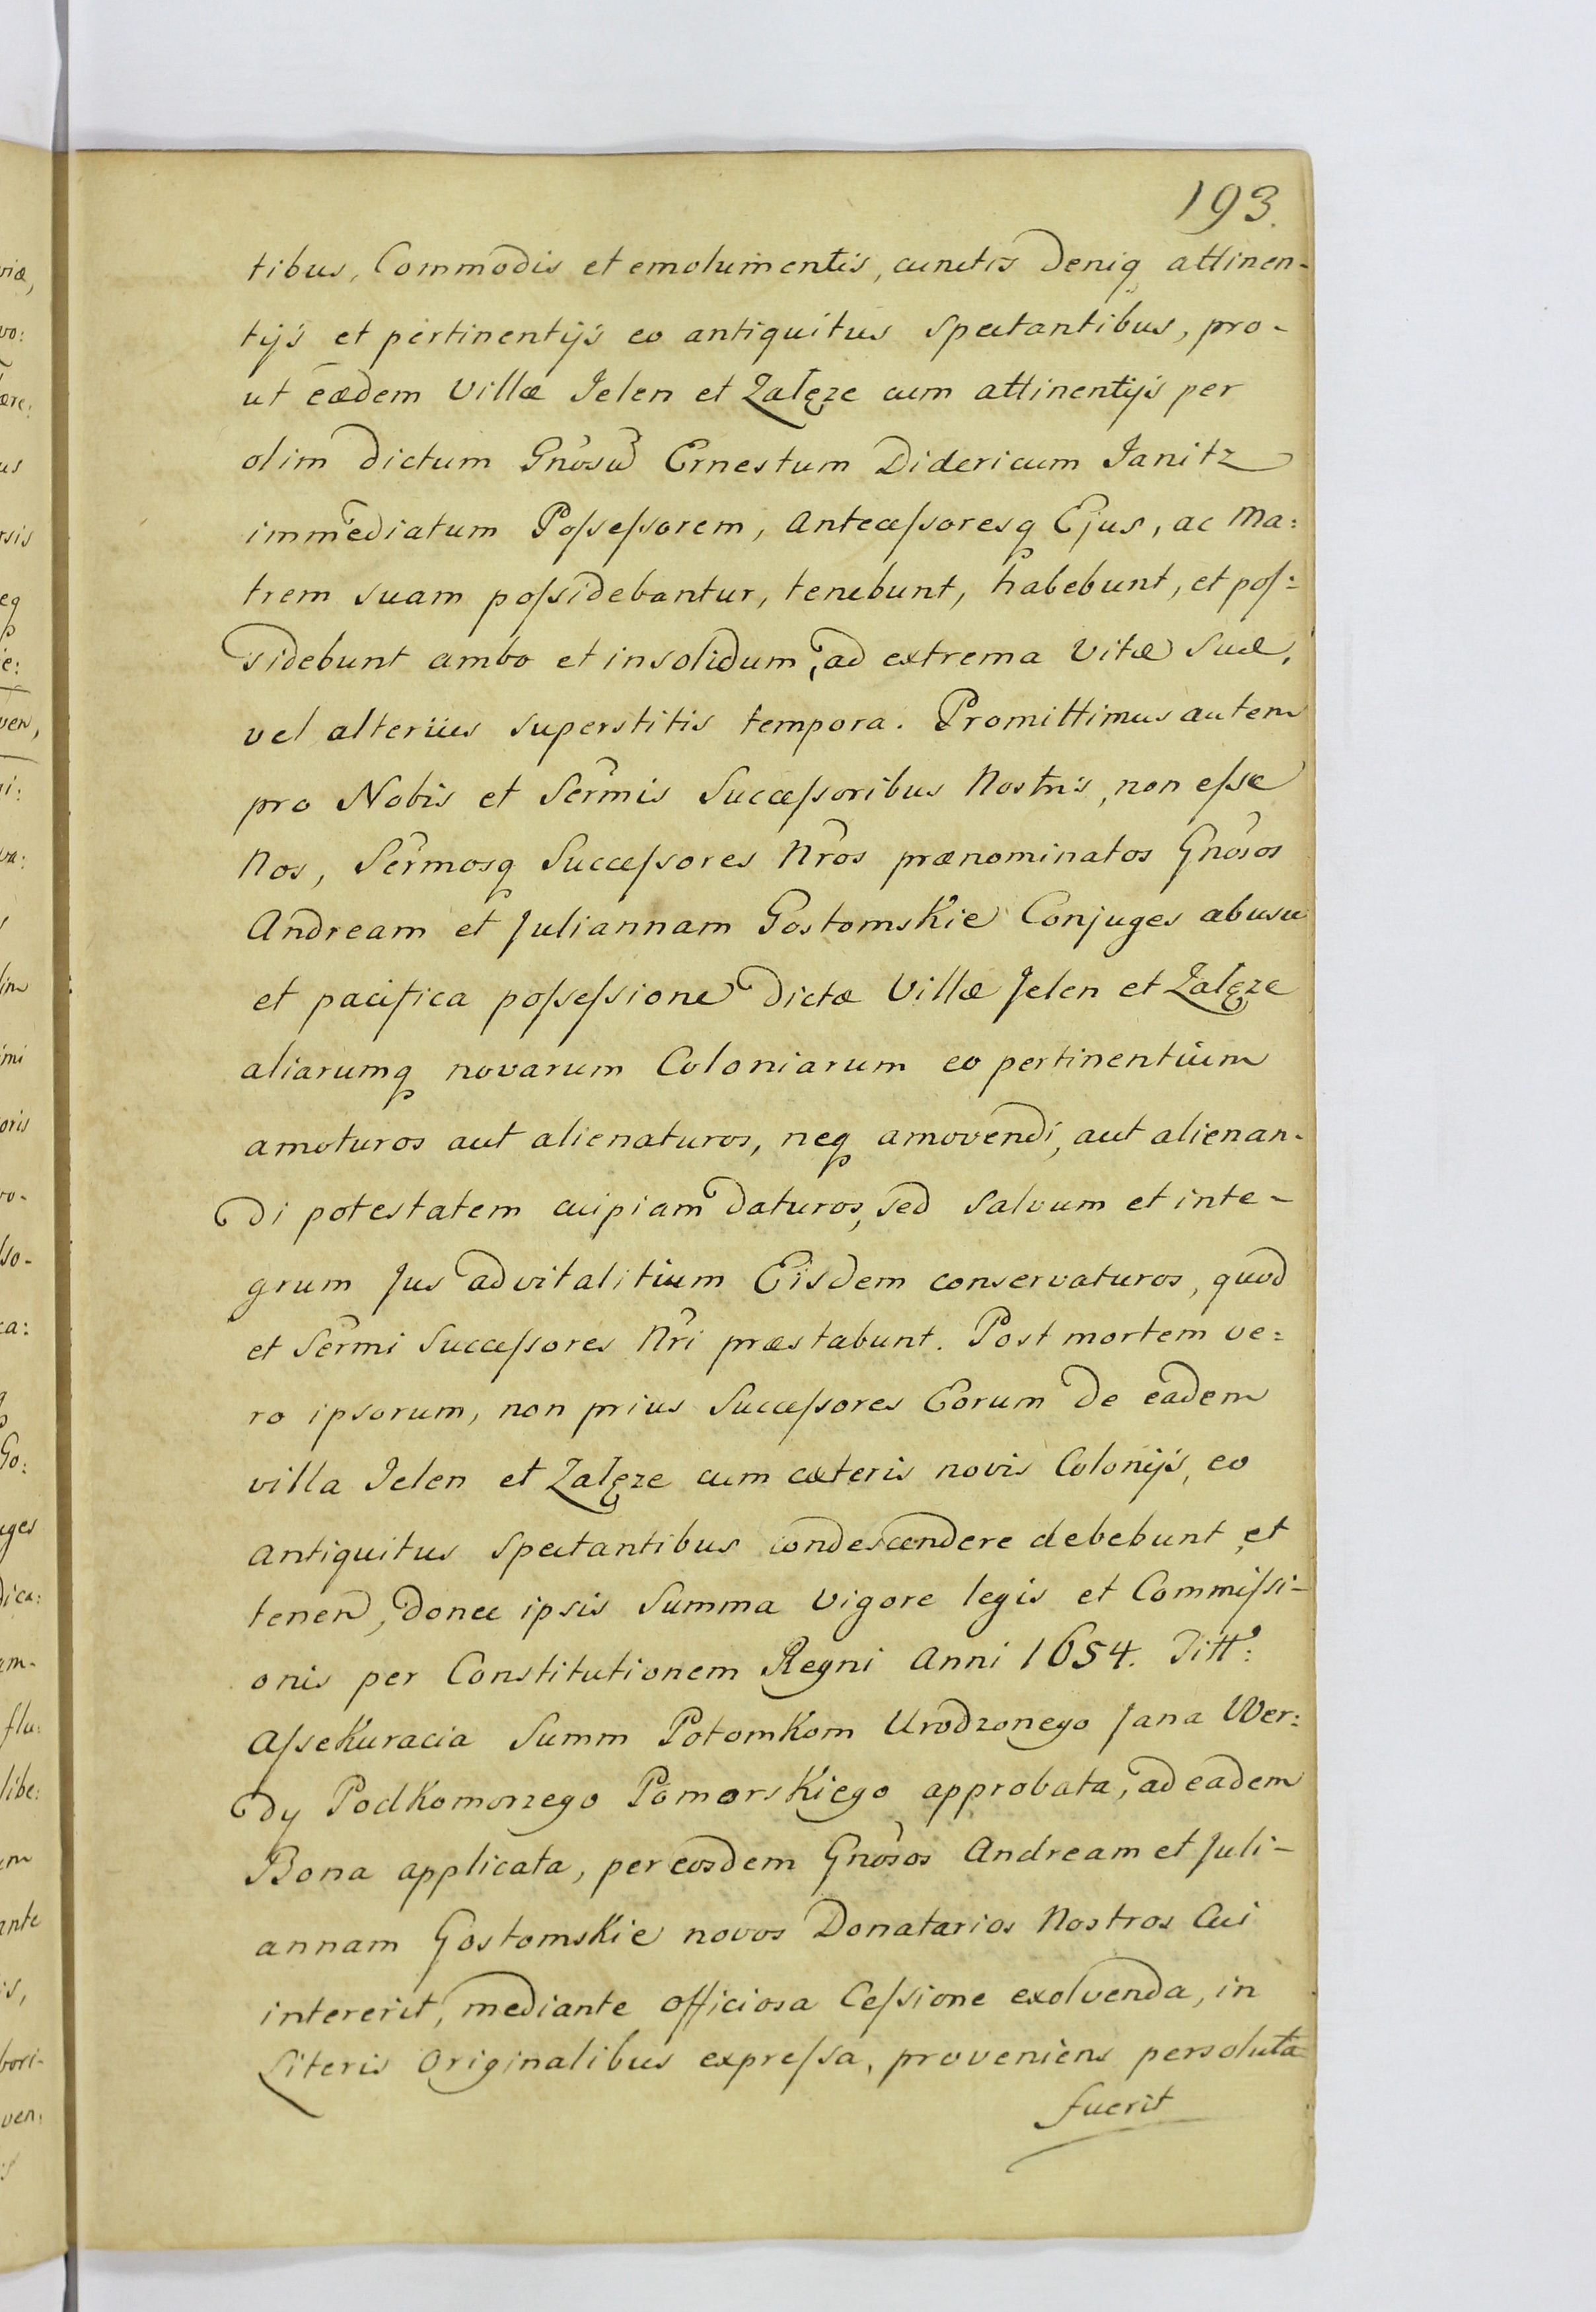 193.
tibus, Commodis et emolumentis, cunctis deniq attinen-
tijs et pertinentijs eo antiquitus spectantibus, pro-
ut eædem Villæ Jelen et Zalęze cum attinentijs per
olim dictum Gnosũ Ernestum Didericum Janitz
immediatum Poſseſsorem, anteceſsoresq Ejus, ac Ma:
trem suam poſsidebantur, tenebunt, habebunt, et poſ:
sidebunt ambo et insolidum, ad extrema Vitæ Suæ,
vel alterius superstitis tempora. Promittimus autem
pro Nobis et Sermis Succeſsoribus Nostris, non eſse
Nos, Sermosq Succeſsores Nros prænominatos Gnosos
Andream et Juliannam Gostomskie Conjuges abusu
et pacifica poſseſsione dictæ Villæ Jelen et Zalęze
aliarumq novarum Coloniarum eo pertinentium
amoturos aut alienaturos, neq amovendi, aut alienan-
di potestatem cuipiam daturos, sed Salvum et inte-
grum Jus advitalitium Eisdem conservaturos, quod
et Sermi Succeſsores Nri præstabunt. Post mortem ve:
ro ipsorum, non prius Succeſsores Eorum de eadem
villa Jelen et Zalęze cum cæteris novis Colonijs, eo
antiquitus spectantibus condescendere debebunt et
tener, donec ipsis Summa vigore legis et Commiſsi-
onis per Constitutionem Regni Anni 1654. Titt:
Aſsekuracia Summ Potomkom Urodzonego Jana Wer:
dy Podkomorzego Pomorskiego approbata, ad eadem
Bona applicata, per eosdem Gnosos Andream et Juli-
annam Gostomskie novos Donatarios Nostros Cui
intererit, mediante officiosa Ceſsione exolvenda, in
Literis Originalibus expreſsa, proveniens persoluta
fuerit